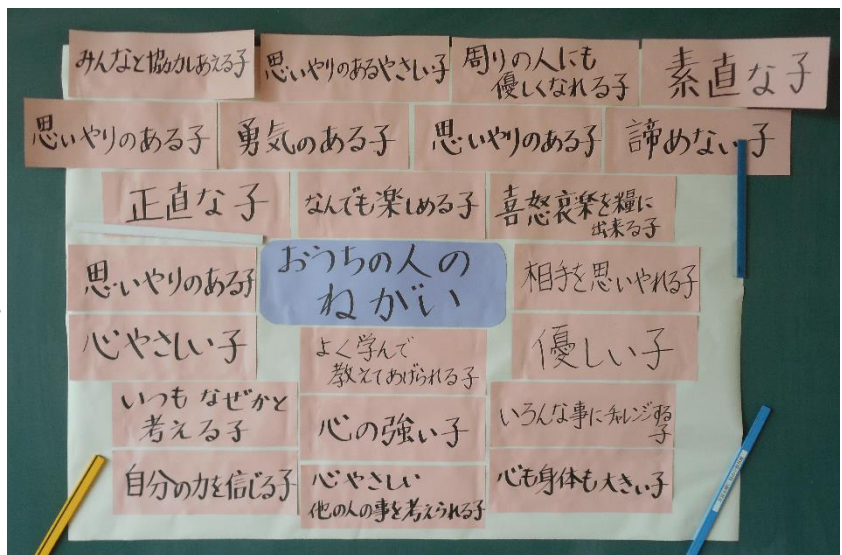 みんなと協力しあえる子
思いやりのあるやさしい子
周りの人にも
優しくなれる子
素直な子
思いやりのある子
勇気のある子
思いやりのある子
諦めない子
正直な子
なんでも楽しめる子
喜怒哀楽を糧に
出来る子
思いやりのある子
おうちの人の
ねがい
相手を思いやれる子
心やさしい子
よく学んで
教えてあげられる子
優しい子
いつもなぜかと
考える子
心の強い子
いろんな事にチャレンジする
子
自分の力を信じる子
心やさしい
他の人の事を考えられる子
心も身体も大きい子